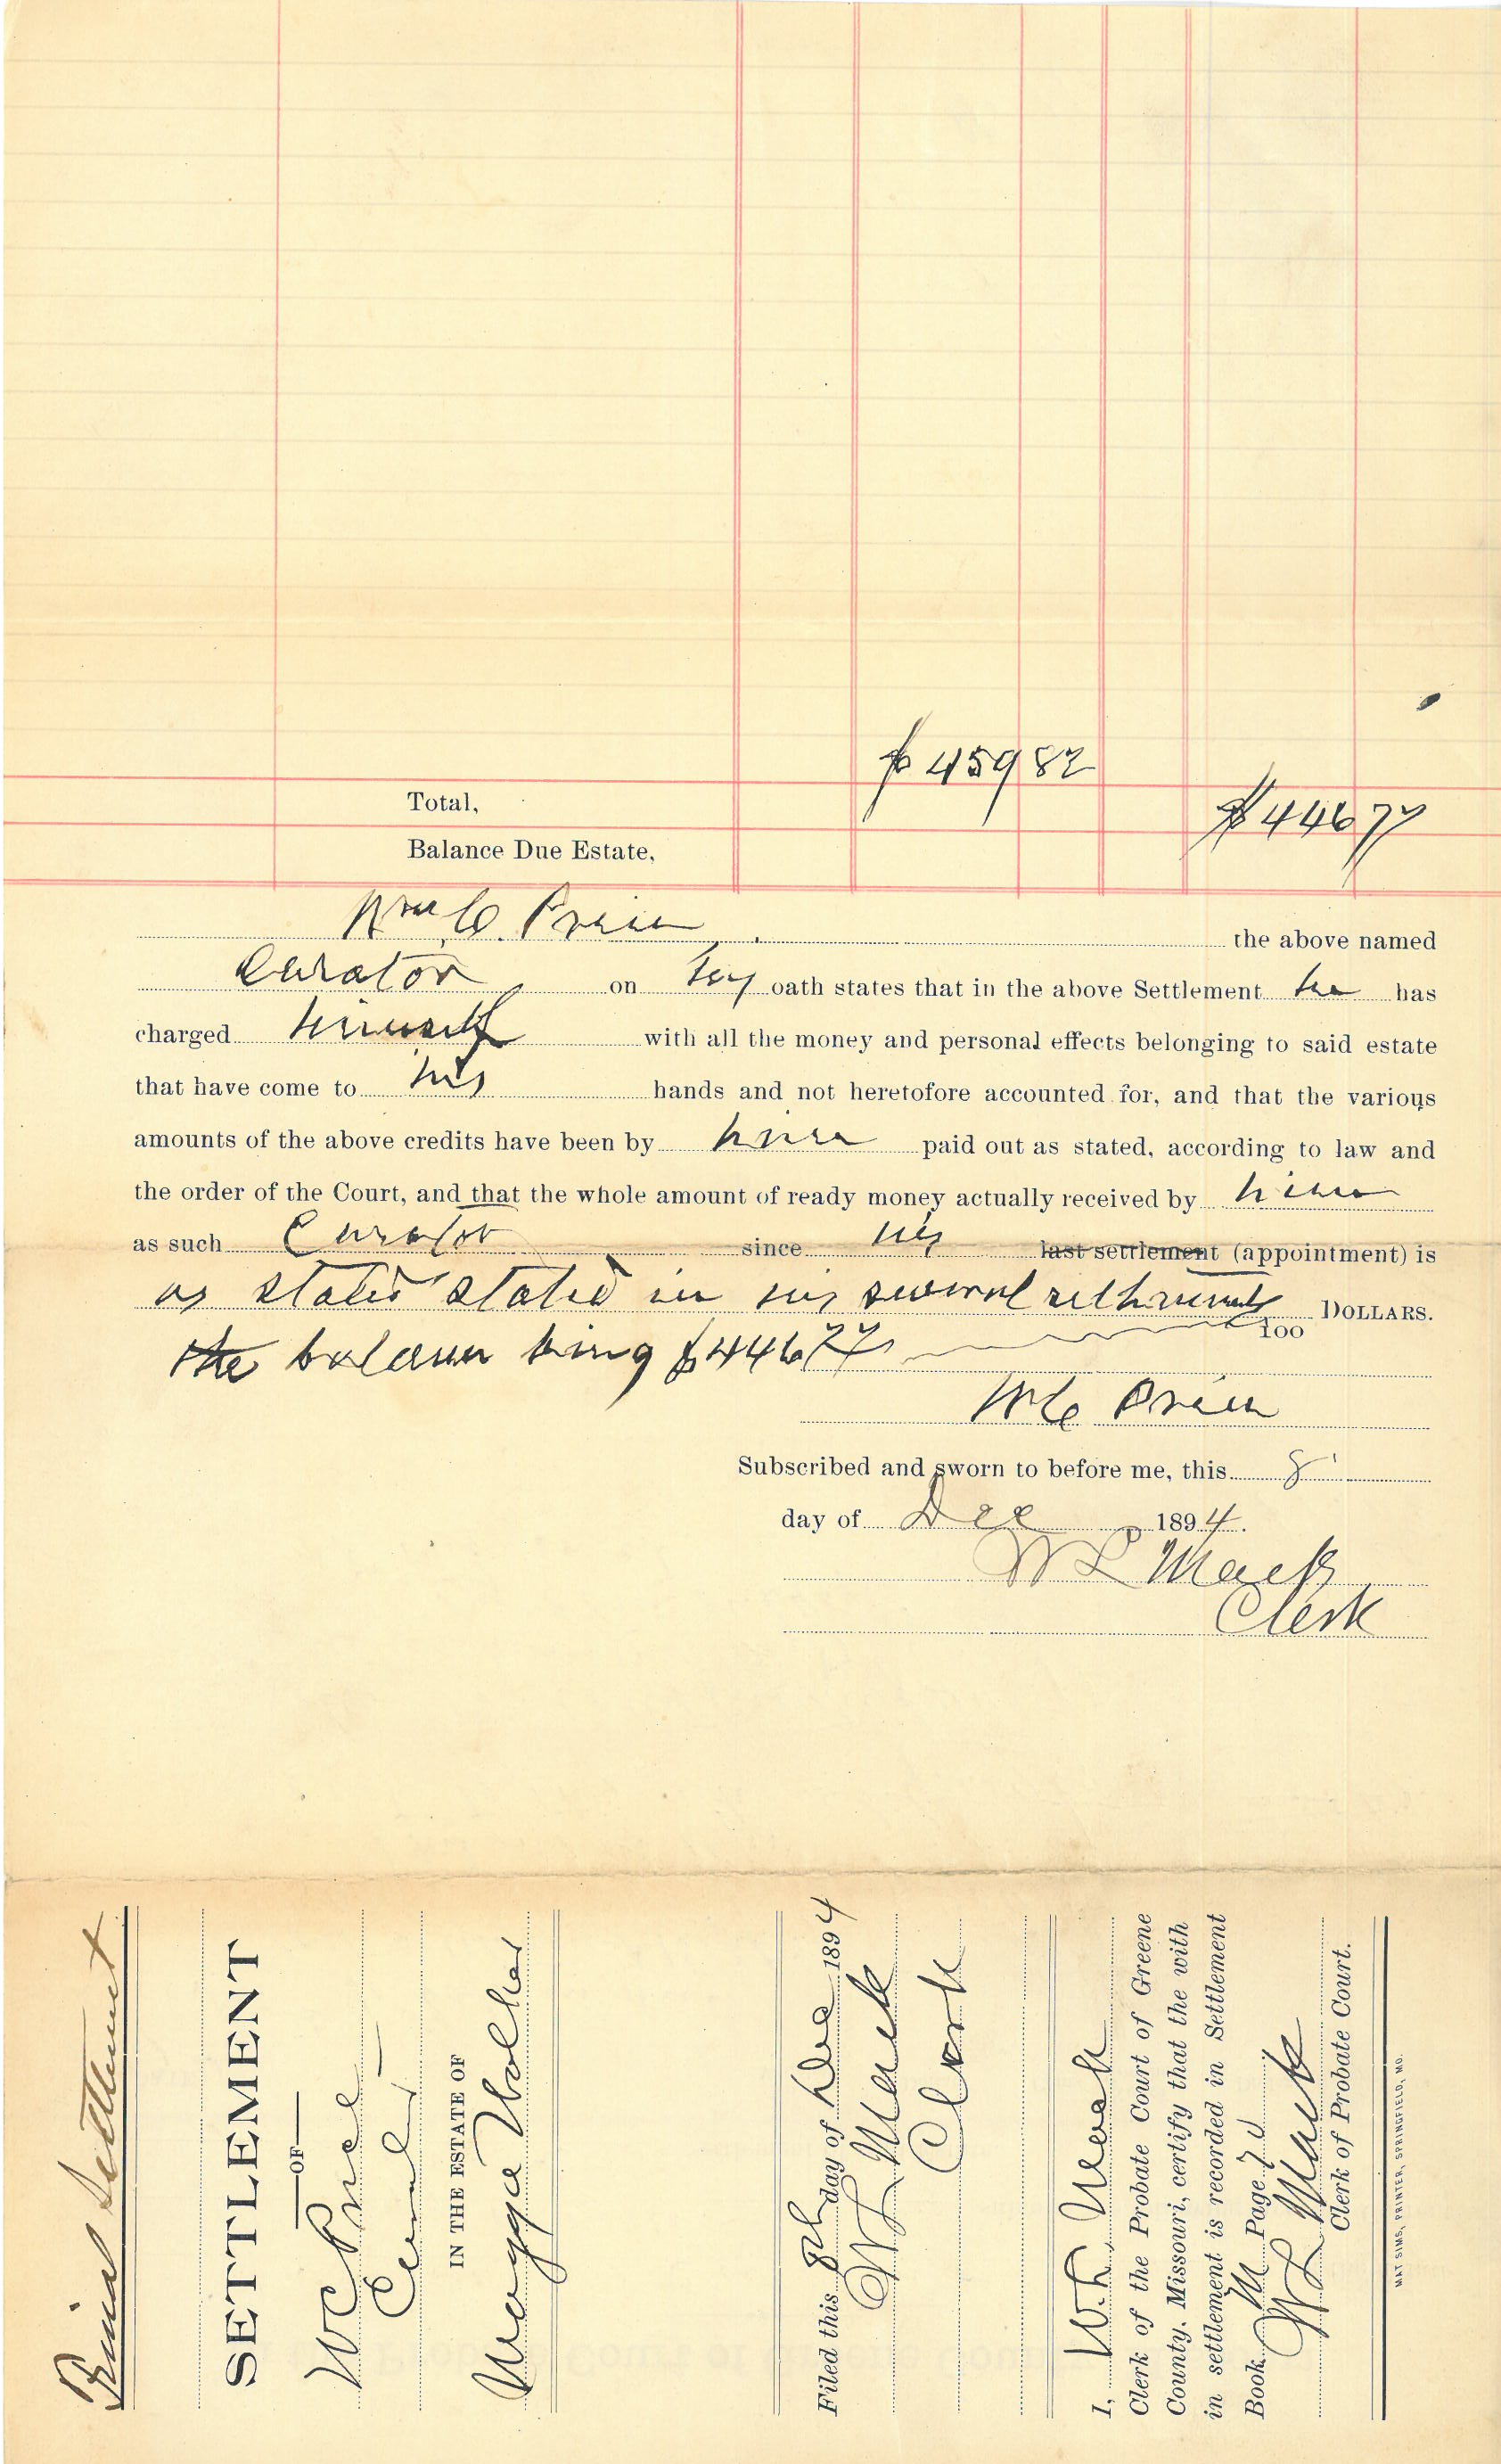 $ 459 82
Total, $ 446 77
Balance Due Estate,
Wm C. Price the above named
Curator on his oath states that in the above Settlement he has
charged himself with all the money and personal effects belonging to said estate
that have come to his hands and not heretofore accounted for, and that the various
amounts of the above credits have been by him paid out as stated, according to law and
the order of the Court, and that the whole amount of ready money actually received by him
as such Curator since his last settlement (appointment) is
as stated stated in his several settlements 100 DOLLARS.
the balance being $446 77
W C Price
Subscribed and sworn to before me, this 8
day of Dec 1894.
W L Mack
Clerk
Final Settlement
SETTLEMENT
OF
W C Price
IN THE ESTATE OF
Maggie
Filed this 8th day of Dec 1894
W L Mack
Clerk
I, W. L. Mack
Clerk of the Probate Court of Greene
County, Missouri, certify that the with
in settlement is recorded in Settlement
Book M Page
W L Mack
Clerk of Probate Court.
MAT SIMS, PRINTER, SPRINGFIELD, MO.